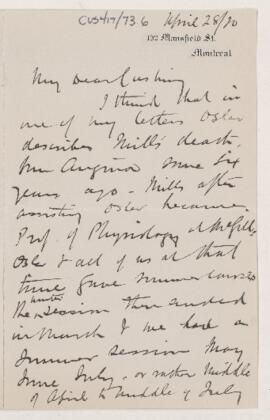 CUS417/73.6
April 28/20
192 Mansfield St.
Montreal
My dear Cushing
I think that in
one of my letters Osler
describes Mills' death.
Angina some six
years ago - Mills after
assisting Osler became
Prof. of Physiology at McGill.
Osler & all of us at that
time gave summer courses
The winter session then ended
in March & we had a
summer session May
June July - or rather middle
of April to middle of July